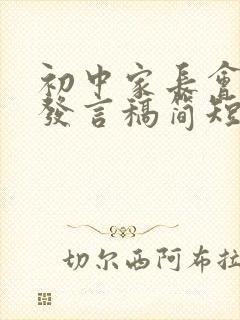 初中家长會
發言稿简短
切尔西阿布拉